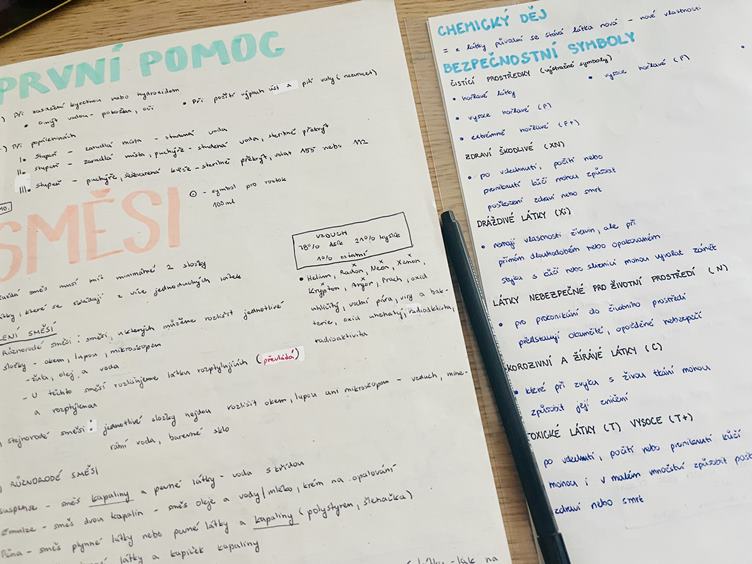 PRVNÍ POMOC
Při zasažení kyselinou nebo hydroxidem
• omýt vodou - pokožka, oči
• Při požití výplach úst a pití vody (neutral)
Při popáleninách
I. stupeň - zarudlá místa - studená voda
II. stupeň - zarudlá místa, puchýře - studená voda, sterilně překrýt
III. stupeň - puchýře, krév - sterilně překrýt, volat 155 nebo 112
- symbol pro roztok
100ml
SMĚSI
VZDUCH
78% dusík 21% kyslík
1% ostatní
• Helium, Radon, Neon, Xenon,
Krypton, Argon, Prach, oxid
uhličitý, vodní pára, viry a bak-
terie, oxid uhelnatý, radioaktivita,
radioaktivita
směs musí mít minimálně 2 složky
látky, které se skládají z více jednoduchých látek
SMĚSÍ
Různorodé směsi: směsi, některých můžeme rozlišit jednotlivé
složky - okem, lupou, mikroskopem
- žula, olej a voda
- U těchto směsí rozlišujeme látku rozptylujících (převládá)
a rozptýlenou
stejnorodé směsi: jednotlivé složky nejdou rozlišit okem, lupou ani mikroskopem - vzduch, mine-
rální voda, barevné sklo
RŮZNORODÉ SMĚSI
suspenze - směs kapaliny a pevné látky - voda s křídou
Emulze - směs dvou kapalin - směs oleje a vody/mléko, krém na opalování
Pěna - směs plynné látky nebo pevné látky a kapaliny (polystyren, šlehačka)
látky a kapiček kapaliny
CHEMICKÝ DĚJ
= z látky původní se stává látka nová - nové vlastnosti
BEZPEČNOSTNÍ SYMBOLY
ČISTÍCÍ PROSTŘEDKY (výstražné symboly)
• hořlavé látky
• vysoce hořlavé (F)
• vysoce hořlavé (F)
• extrémně hořlavé (F+)
ZDRAVÍ ŠKODLIVÉ (XN)
• po vdechnutí, požití nebo
proniknutí kůží mohou způsobit
poškození zdraví nebo smrt
DRÁŽDIVÉ LÁTKY (Xi)
• nemají vlastnosti žíravin, ale při
přímém dlouhodobém nebo opakovaném
styku s kůží nebo sliznicí mohou vyvolat zánět
LÁTKY NEBEZPEČNÉ PRO ŽIVOTNÍ PROSTŘEDÍ (N)
• po proniknutí do životního prostředí
představují okamžité, opožděné nebezpečí
KOROZIVNÍ A ŽÍRAVÉ LÁTKY (C)
• které při styku s živou tkání mohou
způsobit její zničení
TOXICKÉ LÁTKY (T) VYSOCE (T+)
po vdechnutí, požití nebo proniknutí kůží
mohou i v malém množství způsobit
zdraví nebo smrt